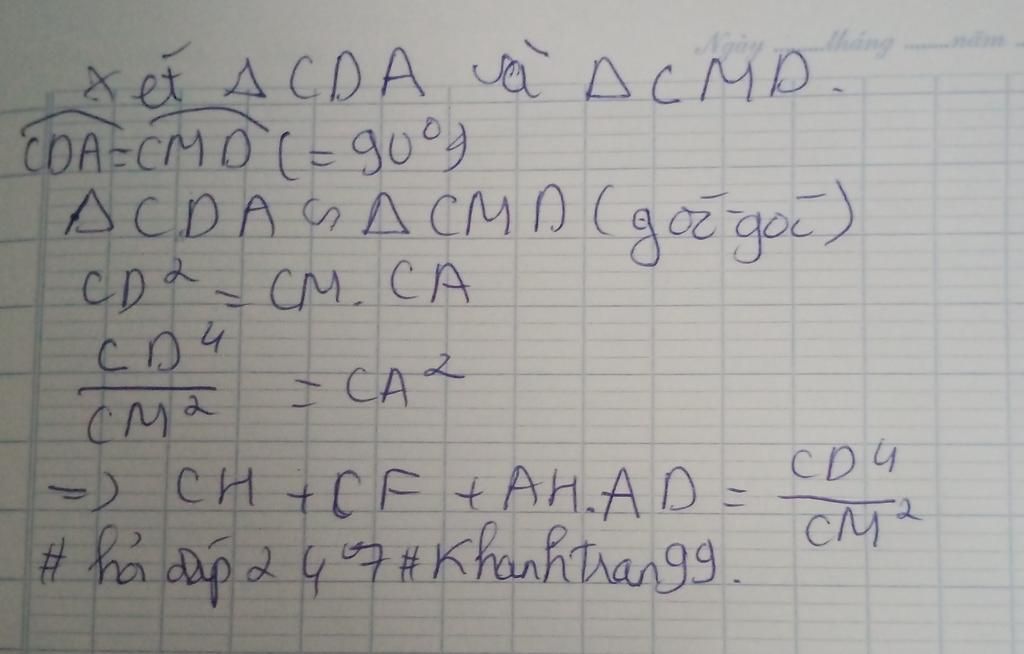 Ngày ........tháng ........năm
Xét Δ CDA và Δ CMD.
CDA = CMD (= 90⁰)
Δ CDA ∽ Δ CMD (góc-góc)
CD² = CM. CA
CD⁴/CM² = CA²
=> CH + CF + AH.AD = CD⁴/CM²
# hỏi đáp 247 # Khanhtran99.